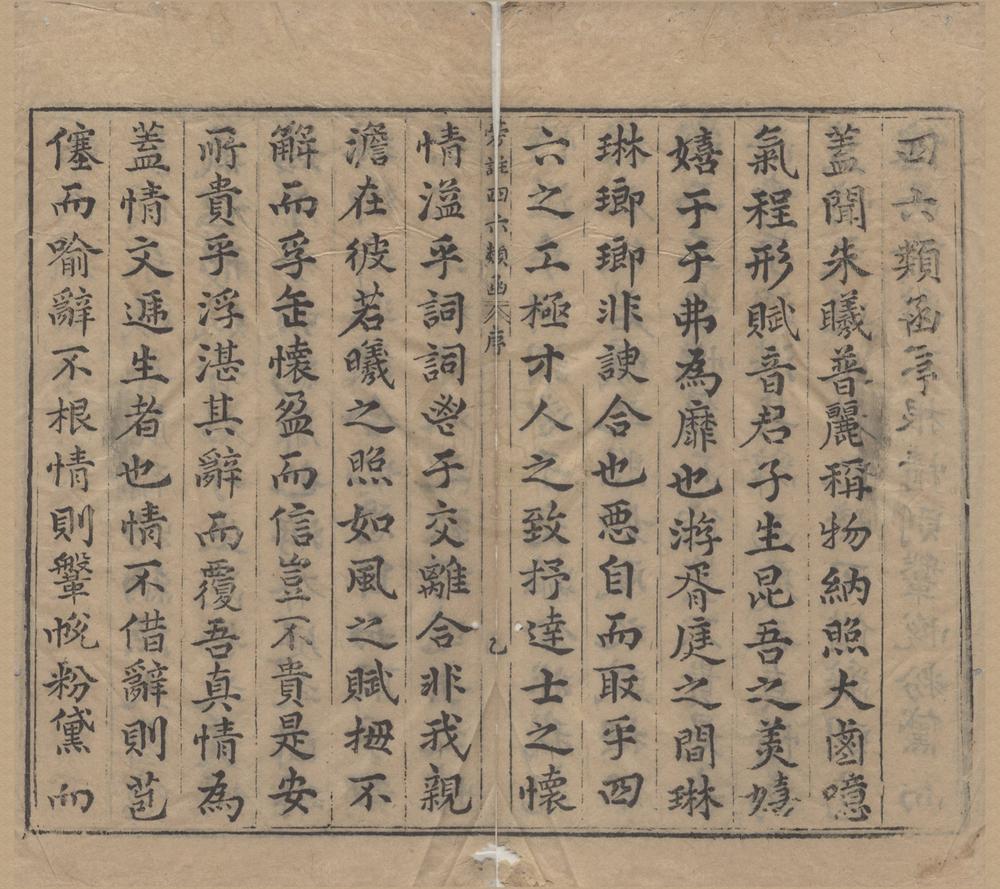 四六類函序
蓋聞朱曦普麗稱物納照大鹵噫
氣程形賦音君子生昆吾之羙嬉
嬉于于弗為靡也游胥庭之間琳
琳瑯瑯非諛合也惡自而取乎四
六之工極才人之致抒逹士之懷
旁註四六類函 序 乙
情溢乎詞詞鬯于交離合非我親
澹在彼若曦之照如風之賦拇不
解而孚缶懷盈而信豈不貴是安
所貴乎浮湛其辭而覆吾真情為
蓋情文遞生者也情不借辭則苞
僿而喻辭不根情則鞶帨粉黛而